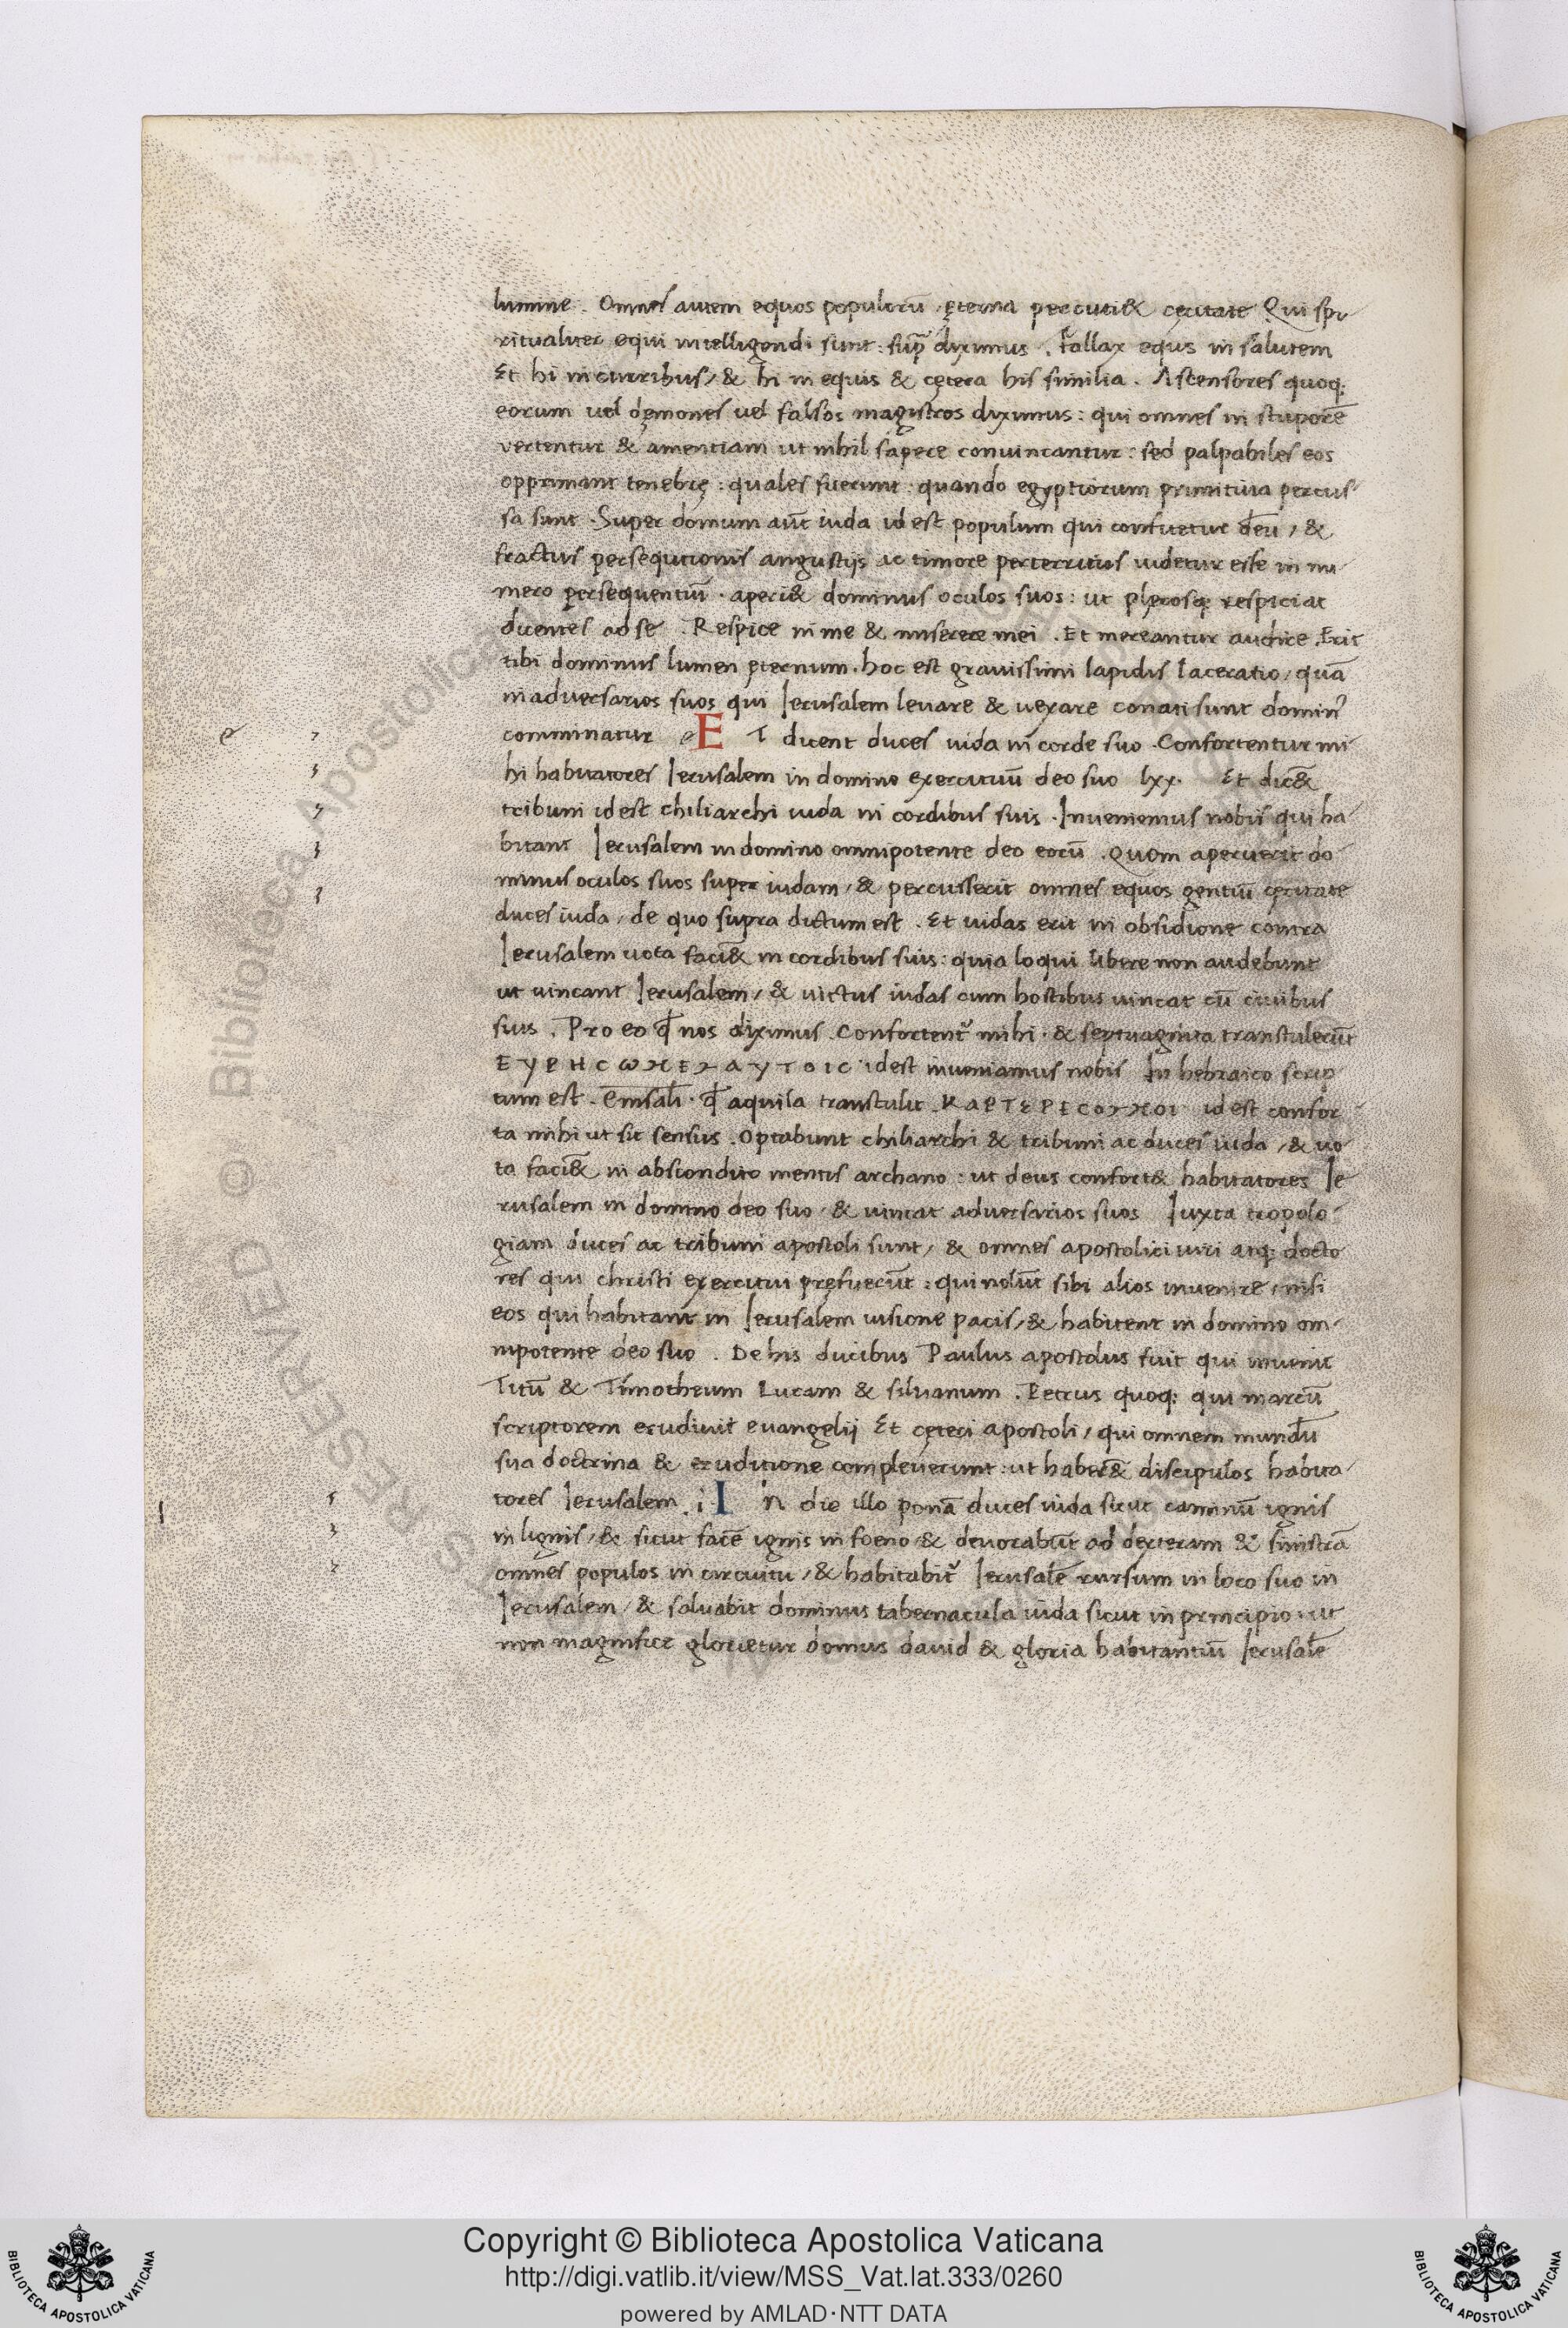 lumine. Omnes autem equos populorū, ęterna percuti& cęcitate Qui spi
ritualiter equi intelligendi sunt: sup̄ diximus. Fallax equs in salutem
Et hi in curribus, & hi in equis & cętera his similia. Ascensores quoq;
eorum uel dęmones uel falsos magistros diximus: qui omnes in stuporē
vertentur & amentiam ut nihil sapere convincantur: sed palpabiles eos
opprimant tenebrę: quales fuerunt: quando egyptiorum primitiva percus
sa sunt. Super domum aūt iuda id est populum qui confitetur deū, &
fractus persequtionis angustijs ac timore perterritus videtur esse in nu
mero persequentiū. aperi& dominus oculos suos: ut plerosq; respiciat
dicentes ad se. Respice in me & miserere mei. Et mereantur audire. Erit
tibi dominus lumen ęternum. hoc est gravissimi lapidis laceratio, quā
in adversarios suos qui Ierusalem levare & vexare conati sunt domin᾿
comminatur e E T dicent duces iuda in corde suo. Confortentur mi
hi habitatores Ierusalem in domino exercituū deo suo lxx. Et dic&
tribuni id est chiliarchi iuda in cordibus suis. Inveniemus nobis qui ha
bitant Ierusalem in domino omnipotente deo eorū. Quom aperuerit do
minus oculos suos super iudam, & percusserit omnes equos gentiū cęcitate
duces iuda, de quo supra dictum est. Et iudas erit in obsidione contra
Ierusalem vota faci& in cordibus suis: quia loqui libere non audebunt
ut vincant Ierusalem, & victus iudas cum hostibus vincat cū civibus
suis. Pro eo ꝙ nos diximus. Confortent᾿ mihi. & septuaginta transtulerūt
ΕΥΡΗCωΜΕΝ ΑΥΤΟΙC id est inveniamus nobis In hebraico scrip
tum est. emsali. ꝙ aquila transtulit ΚΑΡΤΕΡΕCΟΝΜΟΙ id est confor
ta mihi ut sit sensus. Optabunt chiliarchi & tribuni ac duces iuda, & vo
ta faci& in abscondito mentis archano: ut deus confort& habitatores Ie
rusalem in domino deo suo, & vincat adversarios suos Iuxta tropolo
giam duces ac tribuni apostoli sunt, & omnes apostolici viri atq; docto
res qui christi exercitui pręfuerūt: qui nolūt sibi alios invenire, nisi
eos qui habitant in Ierusalem visione pacis, & habitent in domino om
nipotente deo suo. De his ducibus Paulus apostolus fuit qui invenit
Titū & Timotheum Lucam & silvanum. Petrus quoq; qui marcū
scriptorem erudivit evangelij Et cęteri apostoli, qui omnem mundū
sua doctrina & eruditione compleverunt: ut haber& discipulos habita
tores Ierusalem. i I n die illo ponā duces iuda sicut caminū ignis
in lignis, & sicut facē ignis in foeno & devorabūt ad dexteram & sinistrā
omnes populos in circuitu, & habitabit᾿ Ierusalē rursum in loco suo in
Ierusalem, & salvabit dominus tabernacula iuda sicut in principio: ut
non magnifice glorietur domus david & gloria habitantiū Ierusalē
Copyright © Biblioteca Apostolica Vaticana
http://digi.vatlib.it/view/MSS_Vat.lat.333/0260
powered by AMLAD·NTT DATA
BIBLIOTECA APOSTOLICA VATICANA
BIBLIOTECA APOSTOLICA VATICANA